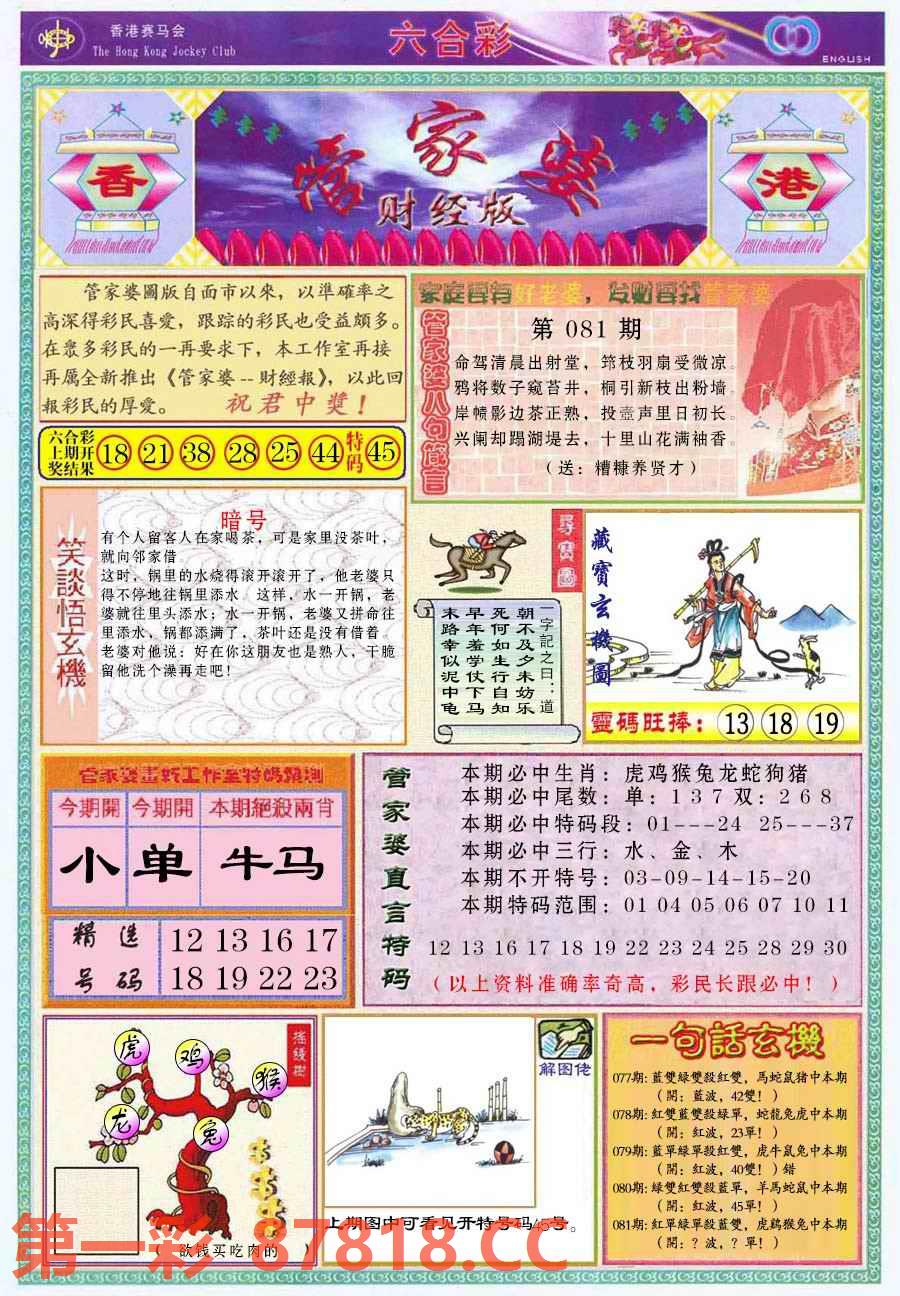 香港赛马会
The Hong Kong Jockey Club
六合彩
ENGLISH
香
管家婆
财经版
港
管家婆圖版自面市以來，以準確率之
高深得彩民喜愛，跟踪的彩民也受益頗多。
在衆多彩民的一再要求下，本工作室再接
再厲全新推出《管家婆--財經報》，以此回
報彩民的厚愛。 祝君中奬！
六合彩
上期开
奖结果
18 21 38 28 25 44 特码 45
家庭要有好老婆，发财要找管家婆
管家婆八句箴言
第 081 期
命驾清晨出射堂，筇枝羽扇受微凉。
鸦将数子窥苔井，桐引新枝出粉墙。
岸帻影边茶正熟，投壶声里日初长。
兴阑却蹋湖堤去，十里山花满袖香。
（送：糟糠养贤才）
笑談悟玄機
暗号
有个人留客人在家喝茶，可是家里没茶叶，
就向邻家借
这时，锅里的水烧得滚开滚开了，他老婆只
得不停地往锅里添水，这样，水一开锅，老
婆就往里头添水；水一开锅，老婆又拼命往
里添水，锅都添满了，茶叶还是没有借着，
老婆对他说：好在你这朋友也是熟人，干脆
留他洗个澡再走吧！
尋寶圖
一字記之曰：道
朝不及夕朱妨乐
死何如生行自知
早年羞学仗下马
末路幸似泥中龟
藏寶玄機圖
靈碼旺捧：13 18 19
管家婆畫 工作室特碼預測
今期開 今期開 本期絕殺兩肖
小 单 牛马
精选
号码
12 13 16 17
18 19 22 23
管家婆直言特码
本期必中生肖：虎鸡猴兔龙蛇狗猪
本期必中尾数：单：1 3 7 双：2 6 8
本期必中特码段：01---24 25---37
本期必中三行：水、金、木
本期不开特号：03-09-14-15-20
本期特码范围：01 04 05 06 07 10 11
12 13 16 17 18 19 22 23 24 25 28 29 30
（以上资料准确率奇高，彩民长跟必中！）
搖錢樹
虎
鸡
猴
龙
兔
（ 欲钱买吃肉的 ）
解图佬
上期图中可看见开特号码45号。
一句話玄機
077期：藍雙緑雙殺紅雙，馬蛇鼠猪中本期
（開：藍波，42雙！）
078期：紅雙藍雙殺緑單，蛇龍兔虎中本期
（開：紅波，23單！）
079期：藍單緑單殺紅雙，虎牛鼠兔中本期
（開：紅波，40雙！）錯
080期：緑雙紅雙殺藍單，羊馬蛇鼠中本期
（開：紅波，45單！）
081期：紅單緑單殺藍雙，虎鷄猴兔中本期
（開：？波，？單！）
第一彩 87818.CC